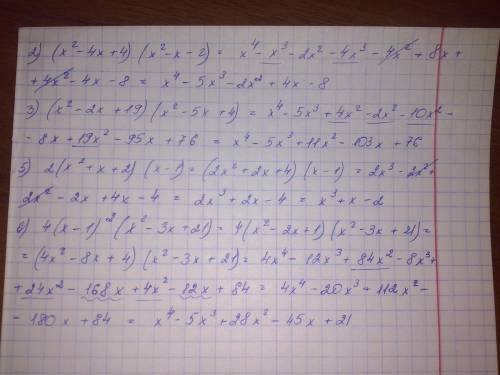 2) (x²-4x+4) (x²-x-2) = x⁴-x³-2x²-4x³-4x²+8x+
+4x²-4x-8 = x⁴-5x³-2x²+4x-8
3) (x²-2x+19)(x²-5x+4) = x⁴-5x³+4x²-2x²-10x²-
-8x+19x²-95x+76 = x⁴-5x³+11x²-103x+76
5) 2(x²+x+2)(x-1) = (2x²+2x+4)(x-1) = 2x³-2x²+
2x²-2x+4x-4 = 2x³+2x-4 = x³+x-2
6) 4(x-1)²(x²-3x+21) = 4(x²-2x+1)(x²-3x+21) =
= (4x²-8x+4)(x²-3x+21) = 4x⁴-12x³+84x²-8x³+
+24x²-168x+4x²-12x+84 = 4x⁴-20x³+112x²-
-180x+84 = x⁴-5x³+28x²-45x+21